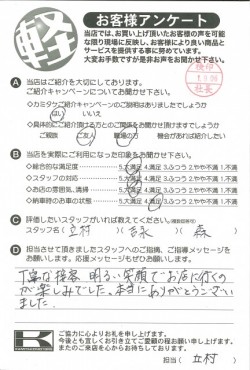 軽
お客様アンケート
当店では、お買い上げ頂いたお客様の声を可
能な限り現場に反映し、お客様により良い商品と
サービスを提供する事に努めています。
大変お手数ですが是非お声をお聞かせ下さい。
検印
社長
A 当店はご紹介を大切にしております。
ご紹介キャンペーンについてお聞かせ下さい。
◇カミタケご紹介キャンペーンのご説明はありましたでしょうか
はい いいえ
◇具体的にご紹介頂ける方とのご関係をお聞かせ頂けますでしょうか
ご親戚 ご友人 職場の方 機会があれば紹介したい
B 当店を実際にご利用になった印象をお聞かせ下さい。
◇総合的な満足度 5.大満足 4.満足 3.ふつう 2.やや不満 1.不満
◇スタッフの対応 5.大満足 4.満足 3.ふつう 2.やや不満 1.不満
◇お店の雰囲気、清掃 5.大満足 4.満足 3.ふつう 2.やや不満 1.不満
◇納車時のお車の状態 5.大満足 4.満足 3.ふつう 2.やや不満 1.不満
C 評価したいスタッフがいれば教えてください。(複数回答可)
スタッフ名( 立村 )( 吉永 )( 森 )
D 担当させて頂きましたスタッフへのご指摘、ご指導メッセージを
お願いします。応援メッセージもぜひお願いします。
丁寧な接客、明るい笑顔でお店に行くの
が楽しみでした。本当にありがとうござい
ました。
K
ご協力に心よりお礼を申し上げます。
今後とも宜しくお引き立てご愛顧の程お願い申し上げます。
またのご来店を心からお待ちしております。
担当( 立村 )